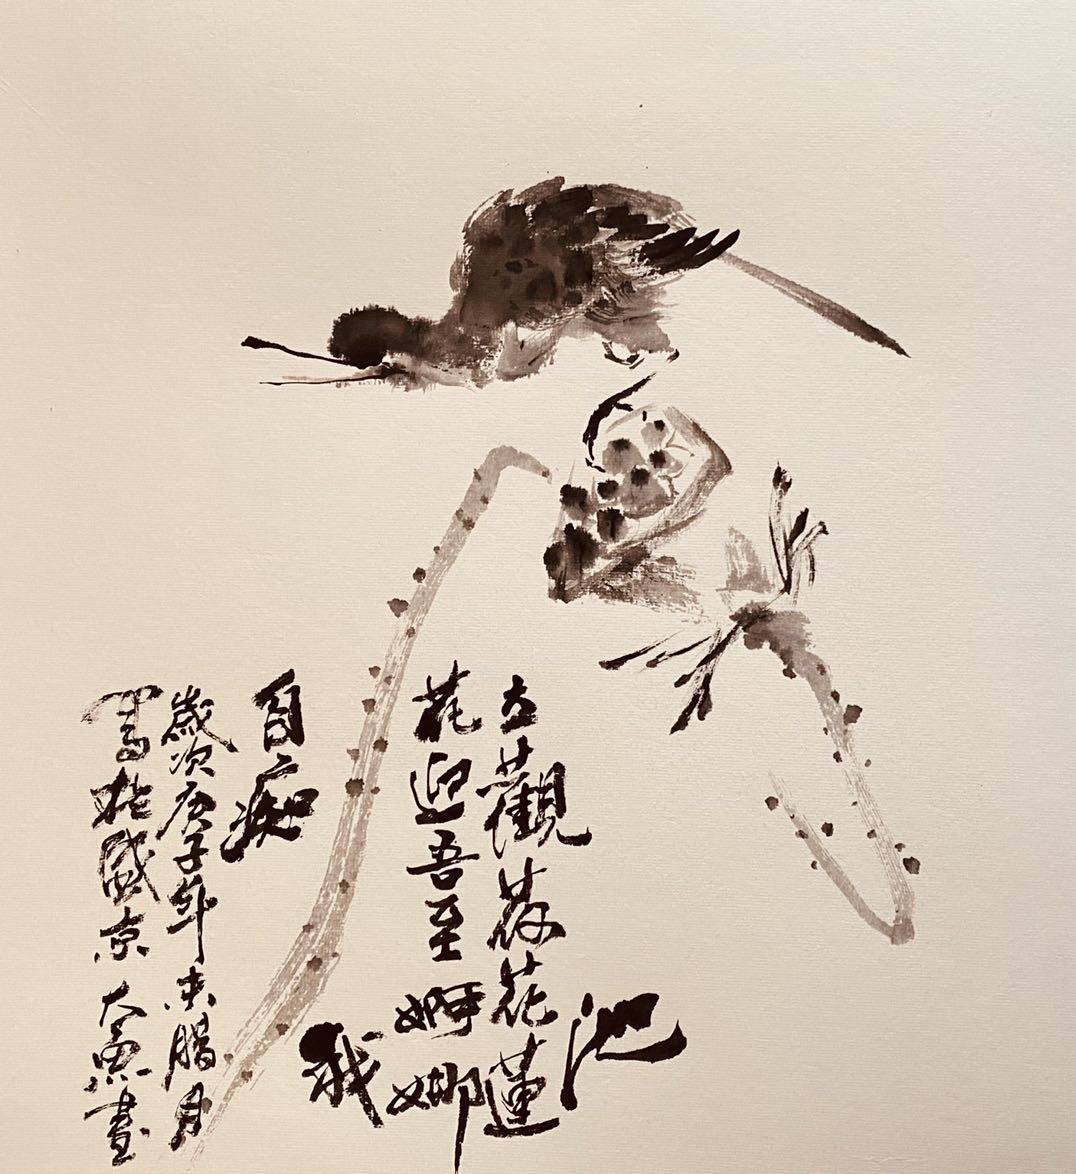 立觀荷花蓮池
花迎吾至婀娜
我
自痴
歲次庚子年末腊月
寫於盛京 大魚畫